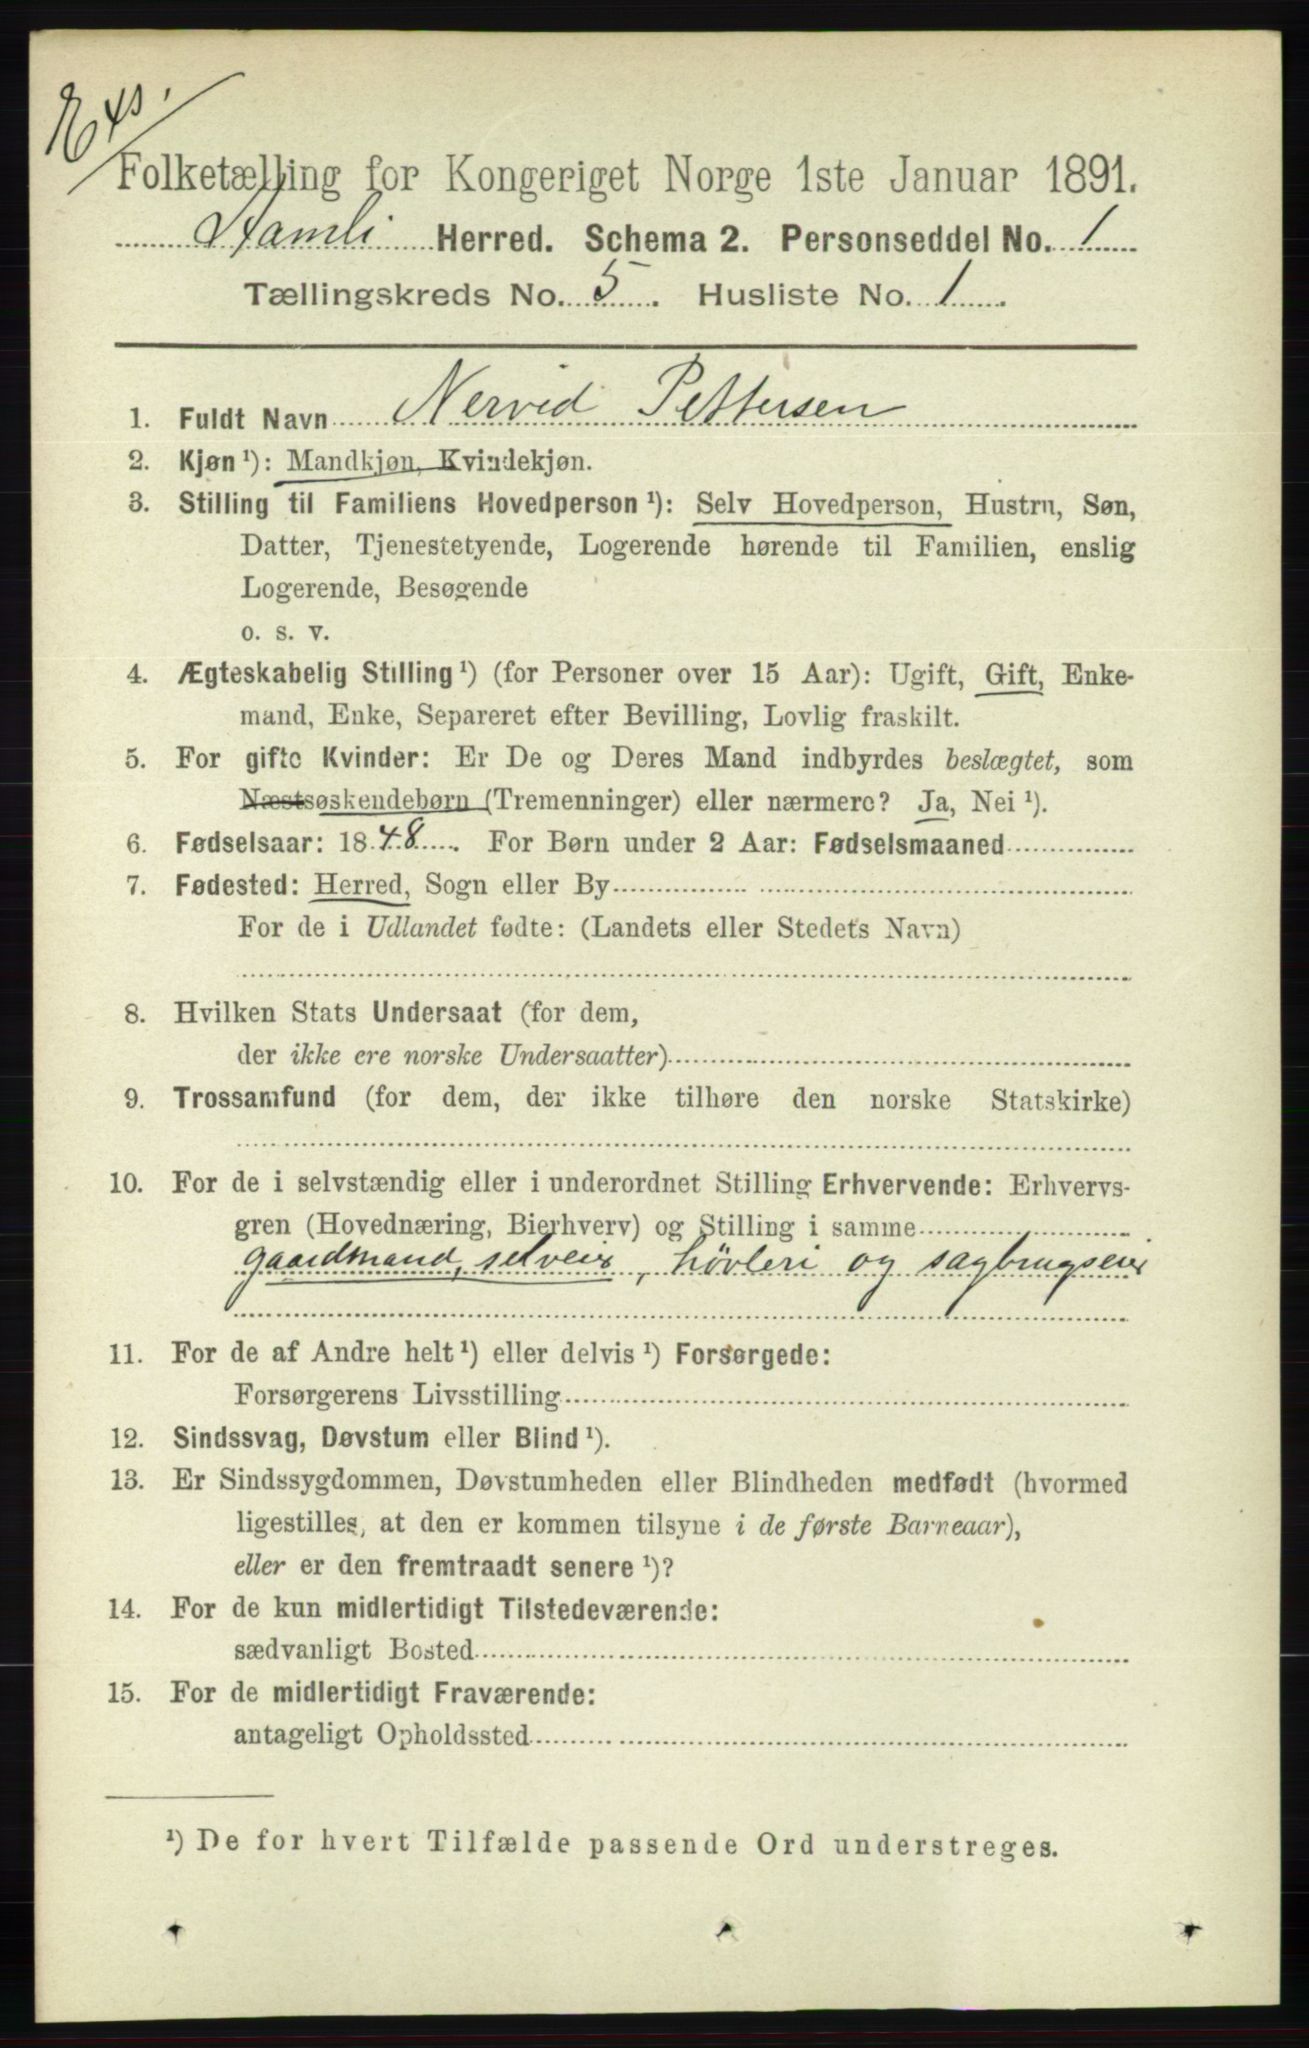 Exp.
Folketælling for Kongeriget Norge 1ste Januar 1891.
Åamli Herred. Schema 2. Personseddel No. 1
Tællingskreds No. 5. Husliste No. 1.
1. Fuldt Navn Nervid Pettersen
2. Kjøn ¹): Mandkjøn, Kvindekjøn.
3. Stilling til Familiens Hovedperson ¹): Selv Hovedperson, Hustru, Søn,
Datter, Tjenestetyende, Logerende hørende til Familien, enslig
Logerende, Besøgende
o. s. v.
4. Ægteskabelig Stilling ¹) (for Personer over 15 Aar): Ugift, Gift, Enke-
mand, Enke, Separeret efter Bevilling, Lovlig fraskilt.
5. For gifte Kvinder: Er De og Deres Mand indbyrdes beslægtet, som
Næstsøskendebørn (Tremenninger) eller nærmere? Ja, Nei ¹).
6. Fødselsaar: 1848. For Børn under 2 Aar: Fødselsmaaned
7. Fødested: Herred, Sogn eller By
For de i Udlandet fødte: (Landets eller Stedets Navn)
8. Hvilken Stats Undersaat (for dem,
der ikke ere norske Undersaatter)
9. Trossamfund (for dem, der ikke tilhøre den norske Statskirke)
10. For de i selvstændig eller i underordnet Stilling Erhvervende: Erhvervs-
gren (Hovednæring, Bierhverv) og Stilling i samme
gaardmand, selveier, høvleri og sagbrugseier
11. For de af Andre helt ¹) eller delvis ¹) Forsørgede:
Forsørgerens Livsstilling
12. Sindssvag, Døvstum eller Blind ¹).
13. Er Sindssygdommen, Døvstumheden eller Blindheden medfødt (hvormed
ligestilles, at den er kommen tilsyne i de første Barneaar),
eller er den fremtraadt senere ¹)?
14. For de kun midlertidigt Tilstedeværende:
sædvanligt Bosted
15. For de midlertidigt Fraværende:
antageligt Opholdssted
¹) De for hvert Tilfælde passende Ord understreges.